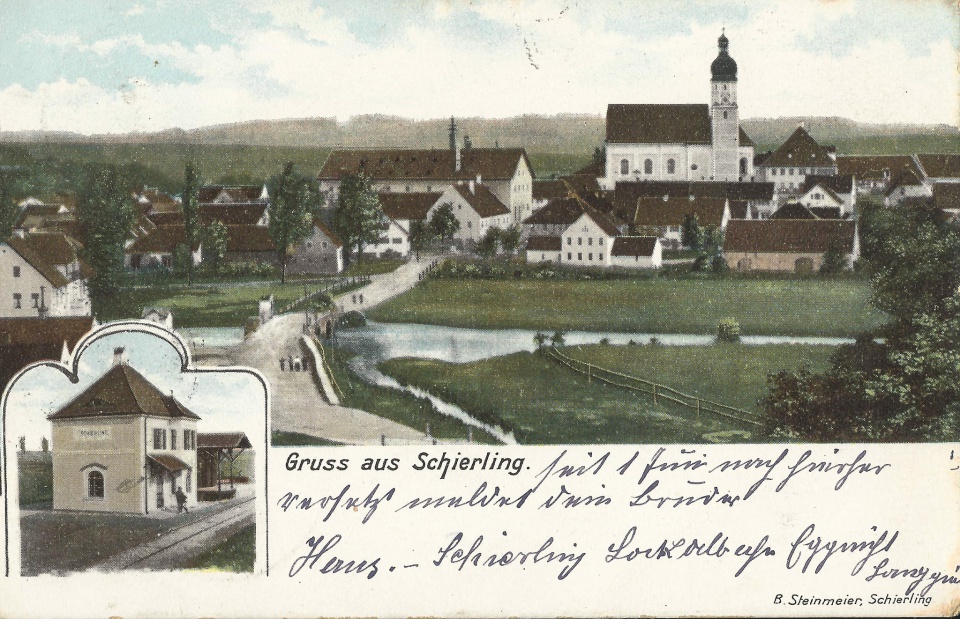 SCHIERLING
Gruss aus Schierling. seit 1 Juni nach hierher
versetzt meldet dein Bruder
Hans. – Schierling Lokalbahn Eggmühl
B. Steinmeier, Schierling